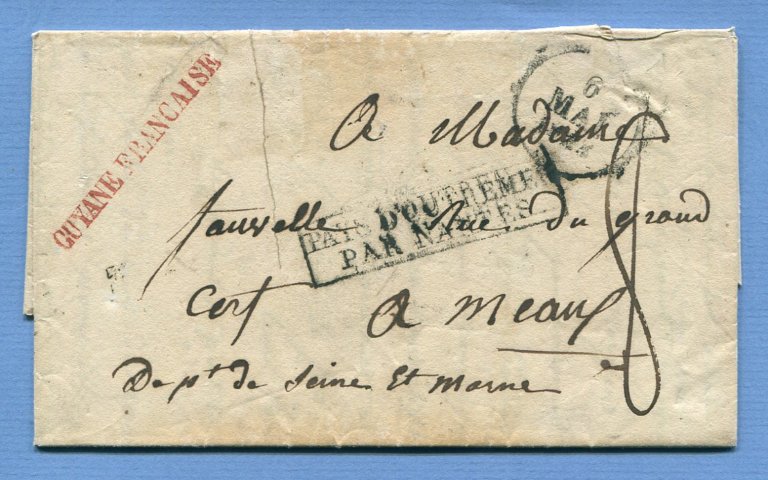 GUYANE FRANCAISE
6
MAR
A Madame
PAYS D'OUTREMER
PAR NANTES
fauvelle Rue du grand
Cerf A Meaux
8
Dept de Seine Et Marne